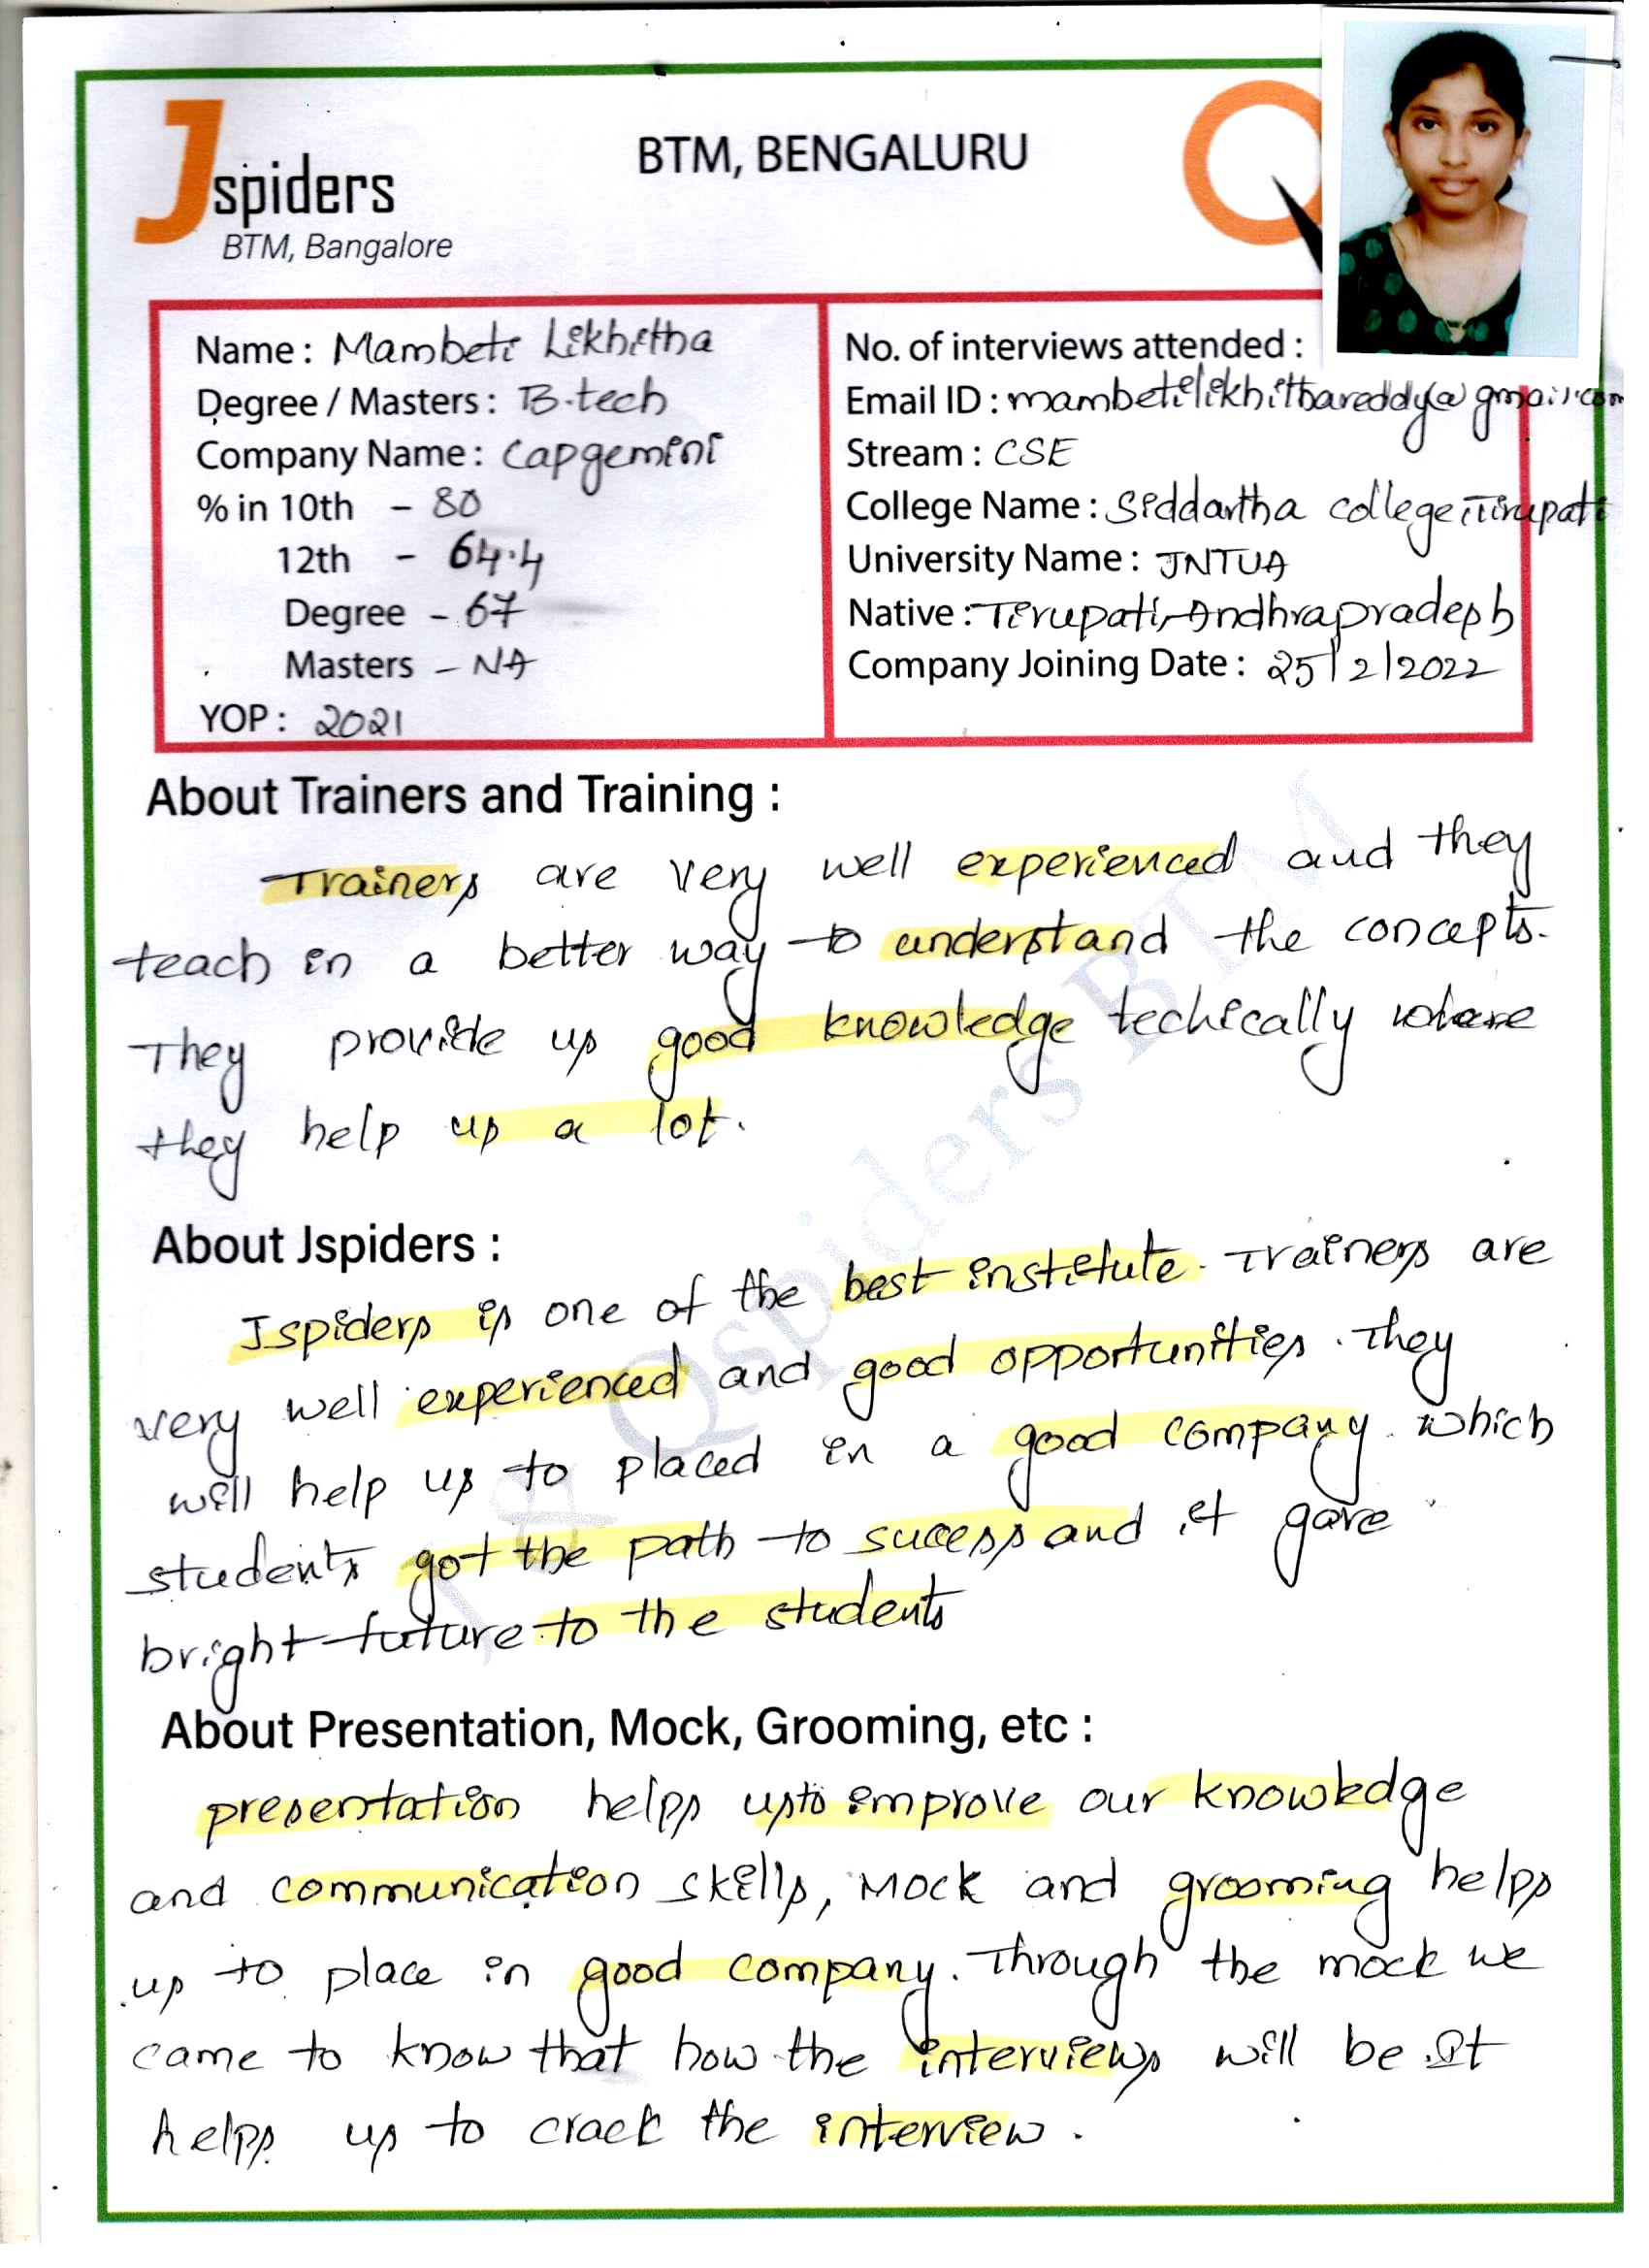 Jspiders
BTM, Bangalore
BTM, BENGALURU
Name : Mambeti Likhitha
Degree / Masters : B.tech
Company Name : Capgemini
% in 10th - 80
12th - 64.4
Degree - 67
Masters - NA
YOP : 2021
No. of interviews attended :
Email ID : mambetilikhithareddy@gmail.com
Stream : CSE
College Name : Siddartha college, Tirupati
University Name : JNTUA
Native : Tirupati, Andhrapradesh
Company Joining Date : 25/2/2022
About Trainers and Training :
Trainers are very well experienced and they
teach in a better way to understand the concepts.
They provide us good knowledge techically where
they help us a lot.
About Jspiders :
Jspiders is one of the best institute. Trainers are
very well experienced and good opportunities. They
will help us to placed in a good company. which
students got the path to sucess and it gave
bright future to the students
About Presentation, Mock, Grooming, etc :
presentation helps us to improve our knowledge
and communication skills, Mock and grooming helps
us to place in good company. Through the mock we
came to know that how the interviews will be. It
helps us to crack the interview.
J & Qspiders BTM